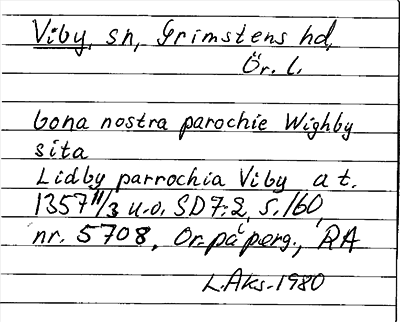 Viby, sn, Grimstens hd,
Ör. l.
bona nostra parochie Wighby
sita
Lidby parrochia Viby a t.
1357 11/3 u.o. SD 7:2, s. 160,
nr. 5708, Or. på perg., RA
L.Aks. 1980